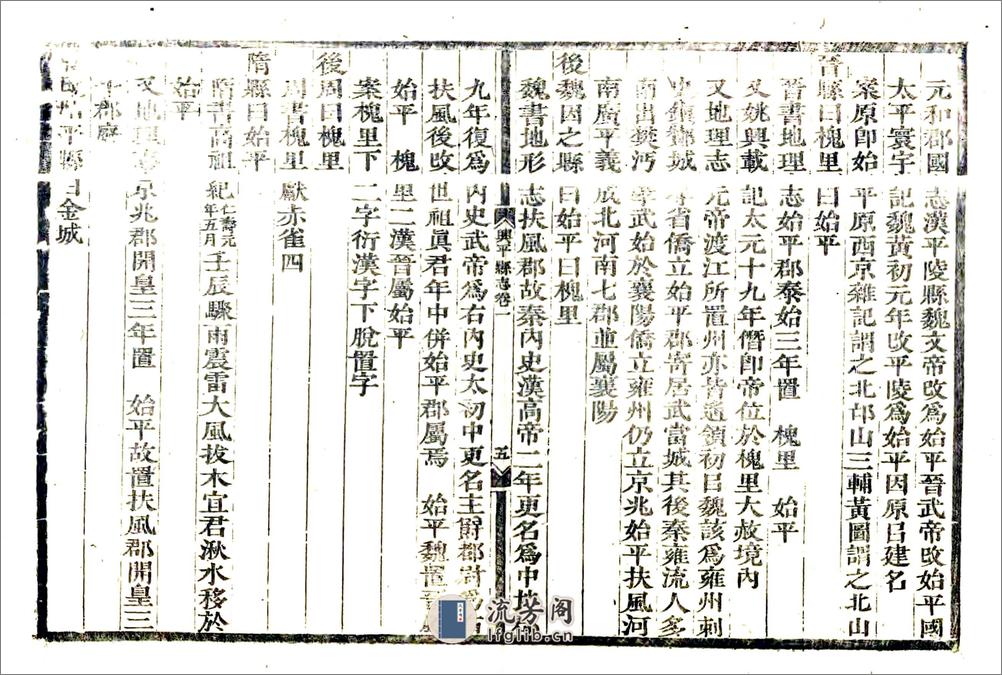 元和郡國志漢平陵縣魏文帝改為始平晉武帝改始平國
太平寰宇記魏黃初元年改平陵為始平因原以建名
案原即始平原西京雜記謂之北邙山三輔黃圖謂之北山
晉縣曰槐里曰始平
晉書地理志始平郡泰始三年置 槐里 始平
又姚興載記太元十九年僭即帝位於槐里大赦境內
又地理志元帝渡江所置州亦皆遙領初以魏該為雍州刺
史鎮酇城 省僑立始平郡寄居武當城其後秦雍流人多
南出樊沔孝武始於襄陽僑立雍州仍立京兆始平扶風河
南廣平義成北河南七郡並屬襄陽
後魏因之縣曰始平曰槐里
魏書地形志扶風郡故秦內史漢高帝二年更名為中地
興平縣志卷一
五
九年復為內史武帝為右內史太初中更名主爵都尉為
扶風後改世祖真君年中併始平郡屬焉 始平魏置
始平 槐里二漢晉屬始平
案槐里下二字衍漢字下脫置字
後周曰槐里
周書槐里獻赤雀四
隋縣曰始平
隋書高祖紀仁壽元年五月壬辰驟雨震雷大風拔木宜君湫水移於
始平
又地理志京兆郡開皇三年置 始平故置扶風郡開皇三
年郡廢
平縣曰金城
流芳阁
lfglib.cn